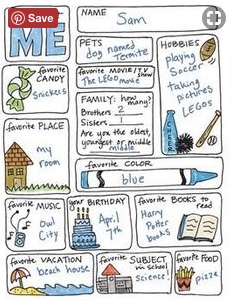 Save
ME
NAME
Sam
PETS
dog named
Termite
HOBBIES
playing
Soccer
taking
pictures
LEGOS
favorite
CANDY
Snickers
favorite MOVIE/TV
show
The LEGO movie
FAMILY: how
many?
Brothers 2
Sisters 1
Are you the oldest,
youngest or middle
middle
favorite PLACE
my
room
favorite COLOR
blue
favorite MUSIC
Owl
City
your BIRTHDAY
April
7th
favorite BOOKS to
read
Harry
Potter
books
favorite VACATION
beach house
favorite SUBJECT
in school
Science!
favorite FOOD
pizza